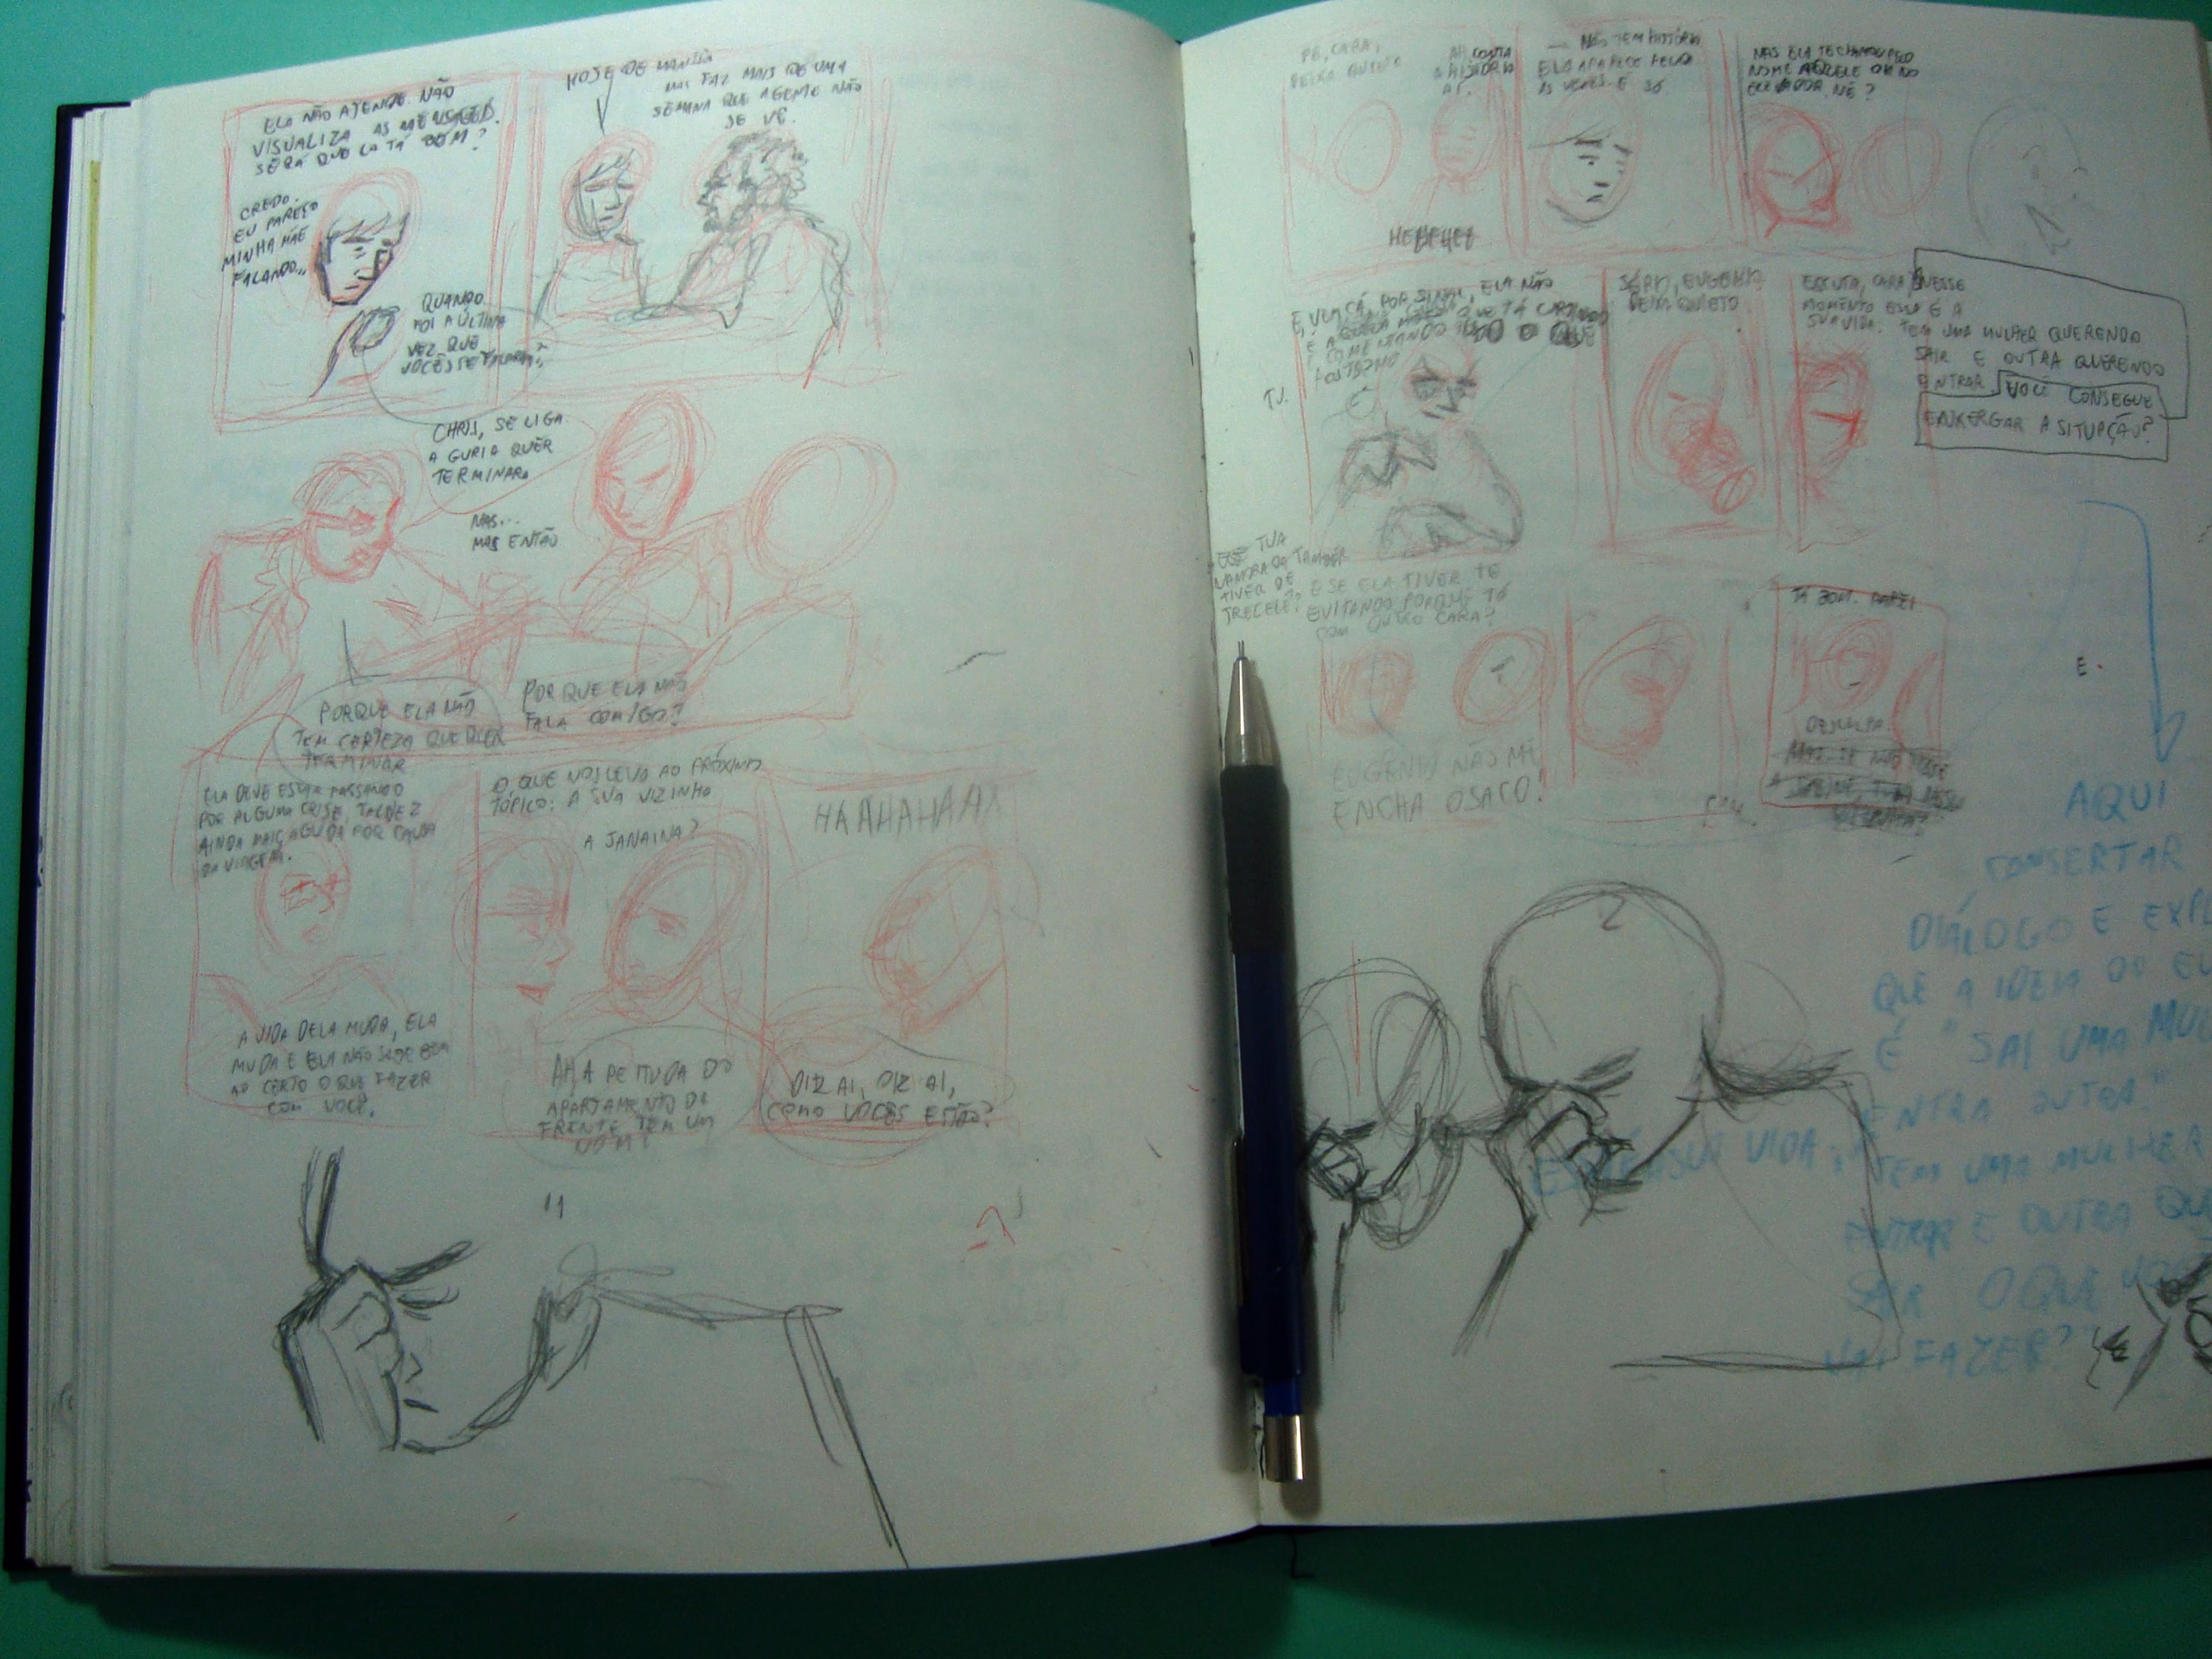 ELA NÃO ATENDE. NÃO
VISUALIZA AS
SERÁ QUE ELA TÁ BEM?
CREDO.
EU PAREÇO
MINHA MÃE
FALANDO...
QUANDO
FOI A ÚLTIMA
VEZ QUE
VOCÊS SE FALARAM?
HOJE DE MANHÃ
MAS FAZ MAIS DE UMA
SEMANA QUE AGENTE NÃO
SE VÊ.
CHRIS, SE LIGA
A GURIA QUER
TERMINAR.
MAS...
MAS ENTÃO
PORQUE ELA NÃO
FALA COMIGO?
PORQUE ELA NÃO
TEM CERTEZA QUE QUER
TERMINAR
ELA DEVE ESTAR PASSANDO
POR ALGUMA CRISE, TALVEZ
AINDA MAIS AGUDA POR CAUSA
DA VIAGEM.
A VIDA DELA MUDA, ELA
MUDA E ELA NÃO SABE BEM
AO CERTO O QUE FAZER
COM VOCÊ.
O QUE NOS LEVA AO PRÓXIMO
TÓPICO: A SUA VIZINHA
A JANAINA?
AH, A PEITUDA DO
APARTAMENTO DA
FRENTE TEM UM
NOME!
HAAHAHAAH
DIZ AI, DIZ AI,
COMO VOCÊS ESTÃO?
11
PÔ, CARA,
DEIXA QUIETO
AH, CONTA
A HISTÓRIA
AI.
HEHEHEH
NÃO TEM HISTÓRIA
ELA APARECE
AS VEZES E SÓ
MAS ELA TE CHAMOU PELO
NOME AQUELE DIA NO
ELEVADOR, NÉ?
E VEM CÁ, POR SINAL, ELA NÃO
É A QUE TÁ CURTINDO
E COMENTANDO O QUE
POSTAMO
SÉRIO, EUGENIO
DEIXA QUIETO.
ESCUTA, CARA, NESSE
MOMENTO ESSA É A
SUA VIDA: TEM UMA MULHER QUERENDO
SAIR E OUTRA QUERENDO
ENTRAR VOCÊ CONSEGUE
ENXERGAR A SITUAÇÃO?
TUA
NAMORADA TAMBÉM
TIVER DE
E SE ELA TIVER TE
EVITANDO PORQUE TÁ
COM OUTRO CARA?
EUGENIO NÃO ME
ENCHA O SACO!
TÁ BOM. PAREI.
DESCULPA.
E.
2
AQUI
CONSERTAR
DIÁLOGO E EXPL
QUE A IDEIA DO EU
É "SAI UMA MUL
ENTRA OUTRA."
ESSA É A SUA VIDA: TEM UMA MULHER
ENTRAR E OUTRA QU
SAIR O QUE VOC
VAI FAZER?"